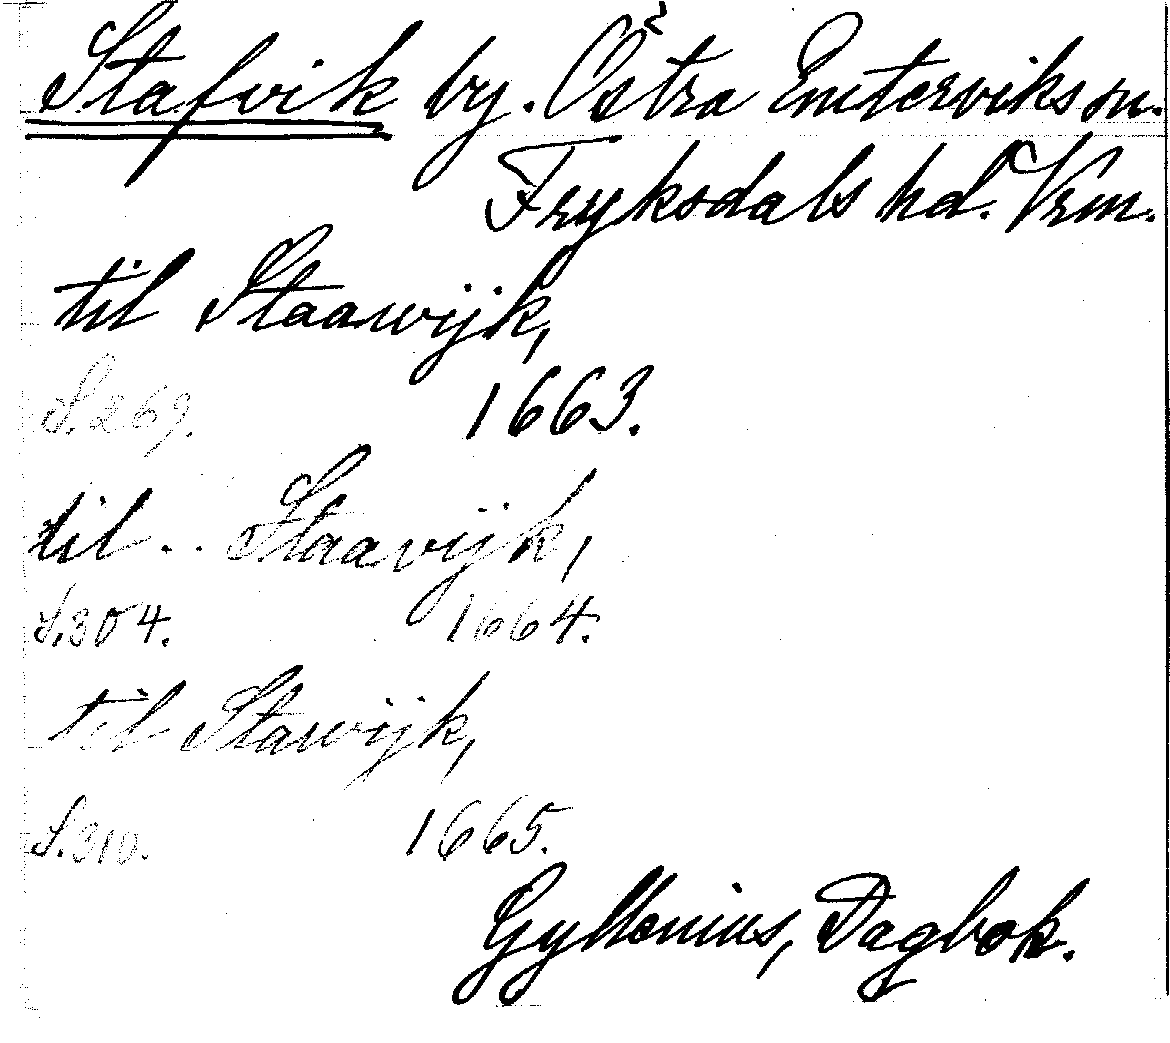 Stafvik by. Östra Emterviks sn.
Fryksdals hd. Vrm.
til Staawijk,
S. 269. 1663.
til .. Staavijk,
S. 304. 1664.
til Stawijk,
S. 310. 1665.
Gyllenius, Dagbok.